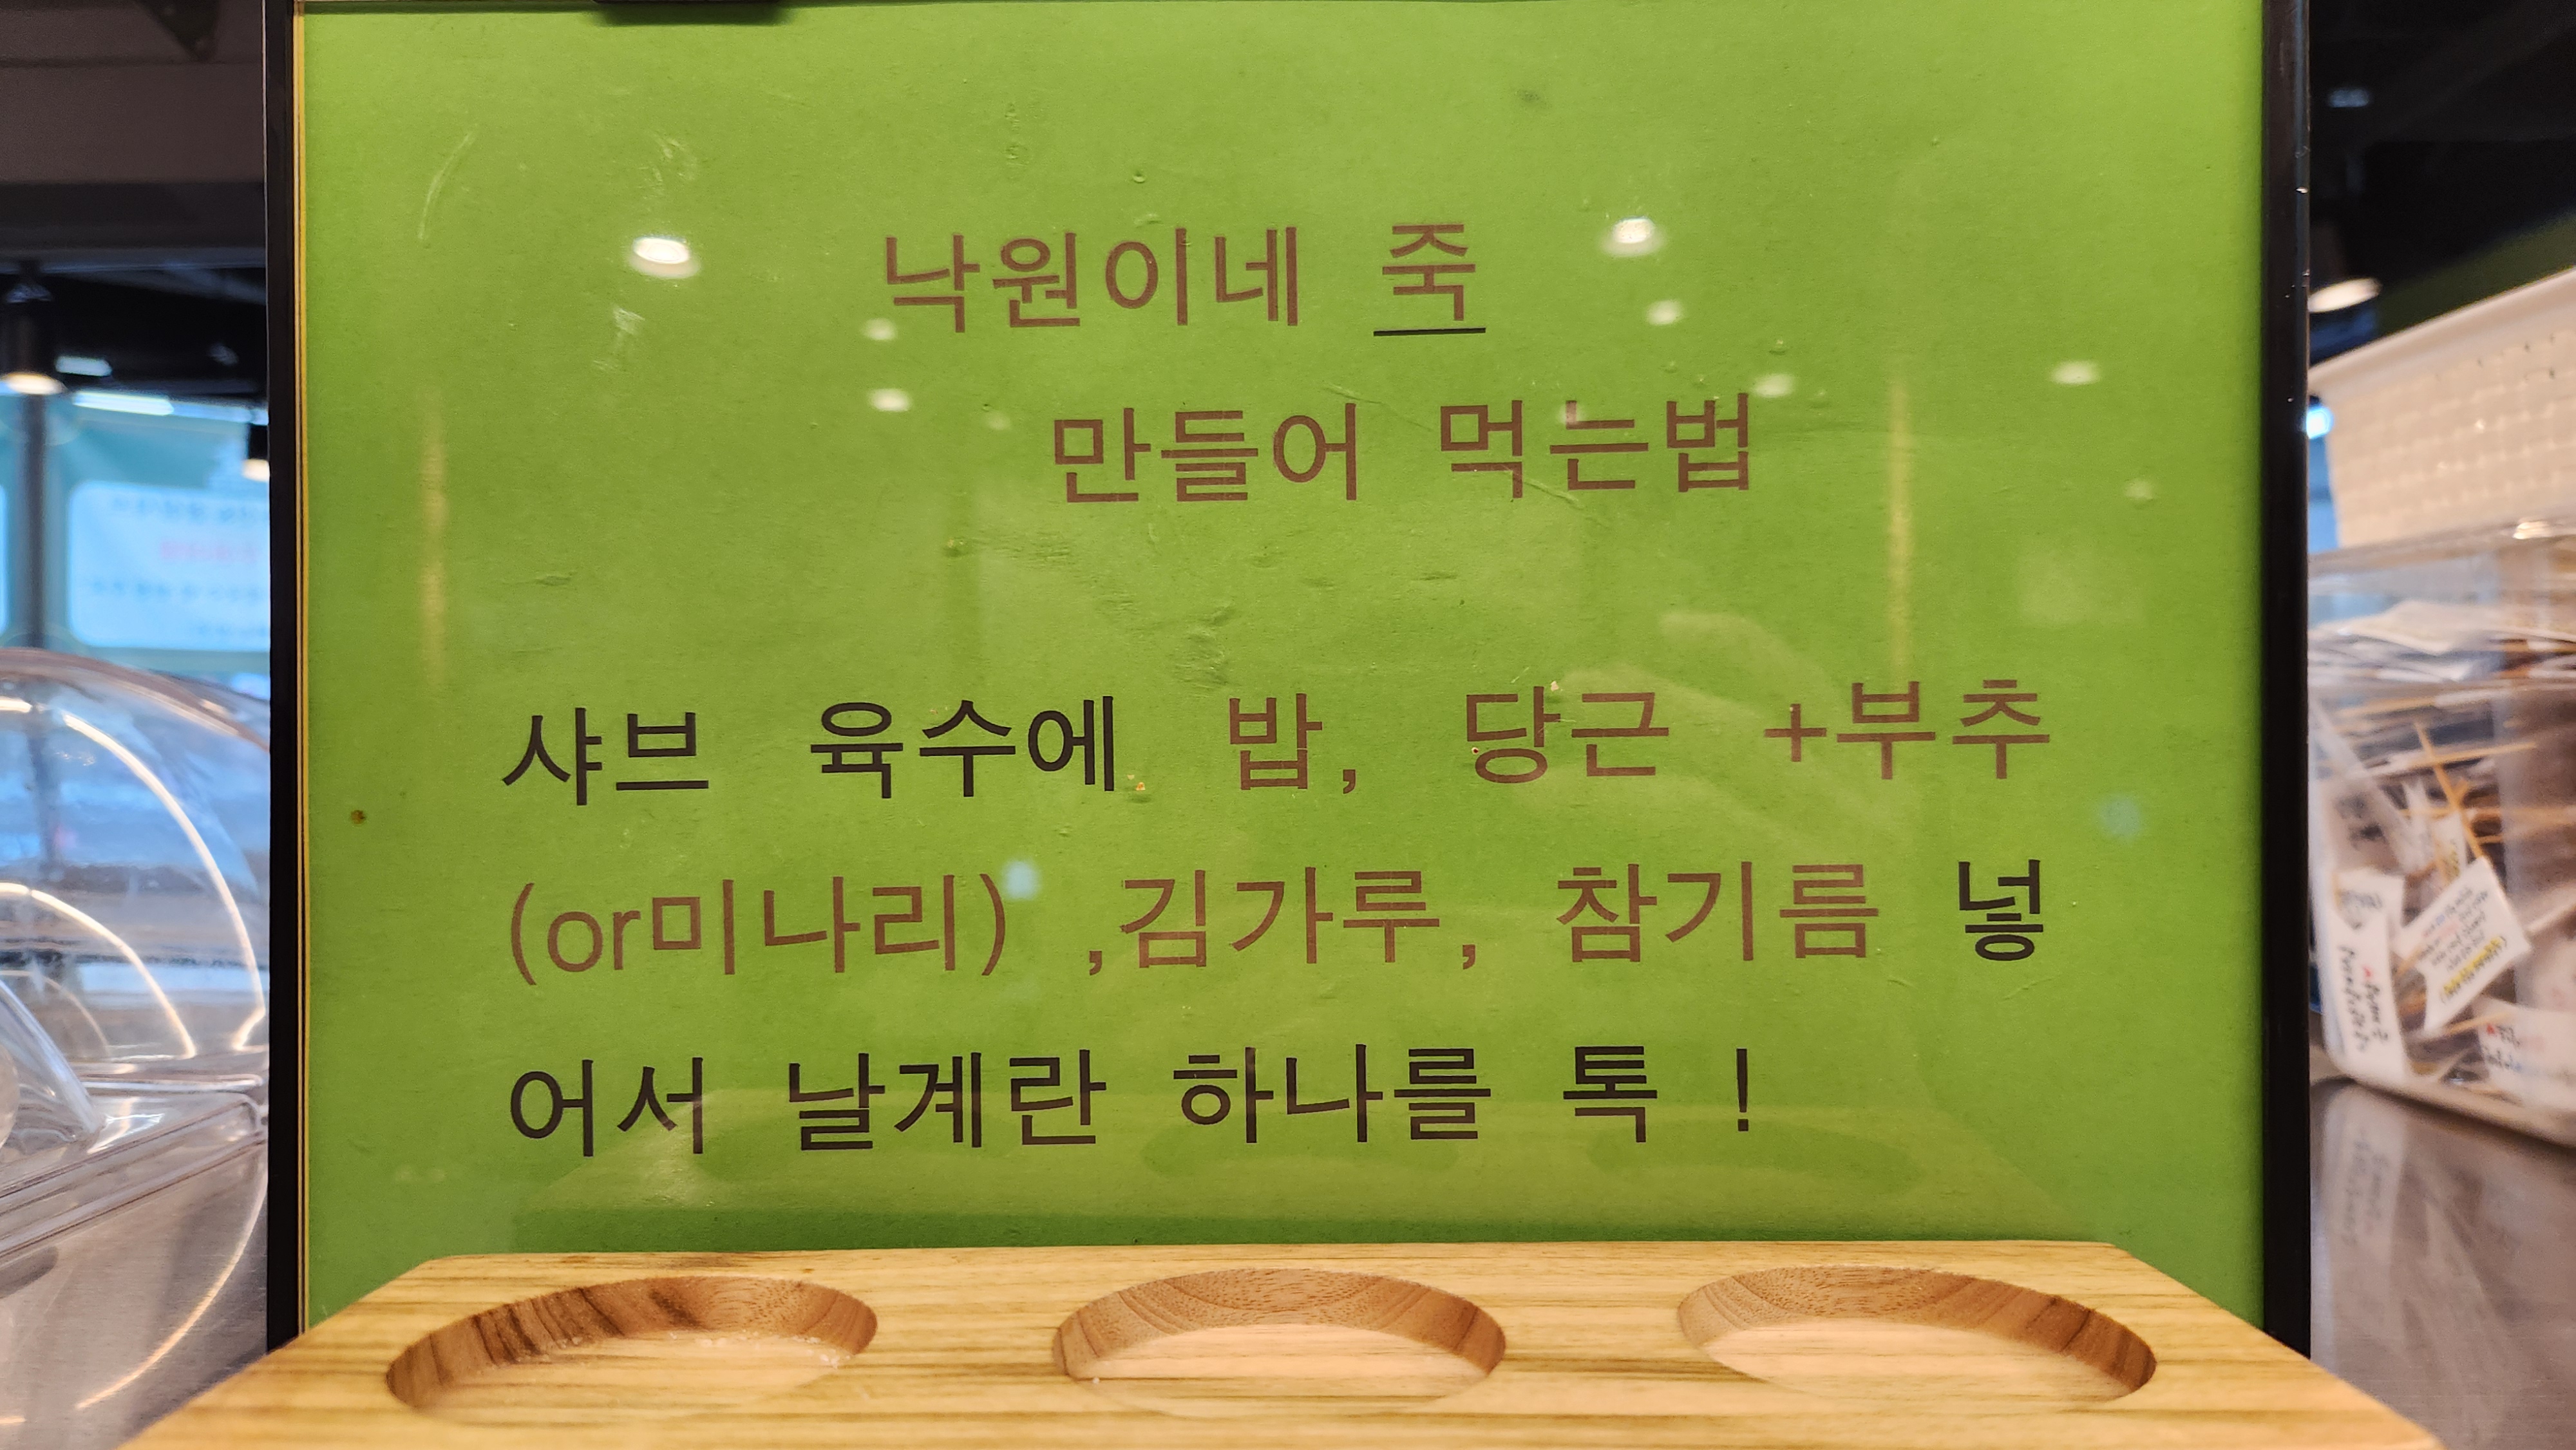 낙원이네 죽
만들어 먹는법
샤브 육수에 밥, 당근 +부추
(or미나리) ,김가루, 참기름 넣
어서 날계란 하나를 톡 !